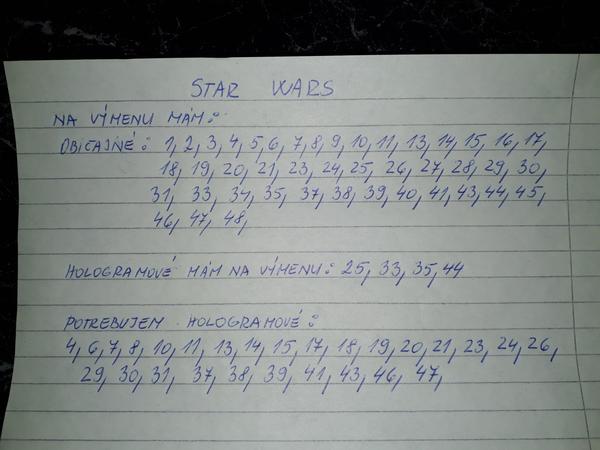 STAR WARS
NA VÝMENU MÁM:
OBIČAJNÉ: 1, 2, 3, 4, 5, 6, 7, 8, 9, 10, 11, 13, 14, 15, 16, 17,
18, 19, 20, 21, 23, 24, 25, 26, 27, 28, 29, 30,
31, 33, 34, 35, 37, 38, 39, 40, 41, 43, 44, 45,
46, 47, 48,
HOLOGRAMOVÉ MÁM NA VÝMENU: 25, 33, 35, 44
POTREBUJEM HOLOGRAMOVÉ:
4, 6, 7, 8, 10, 11, 13, 14, 15, 17, 18, 19, 20, 21, 23, 24, 26,
29, 30, 31, 37, 38, 39, 41, 43, 46, 47,